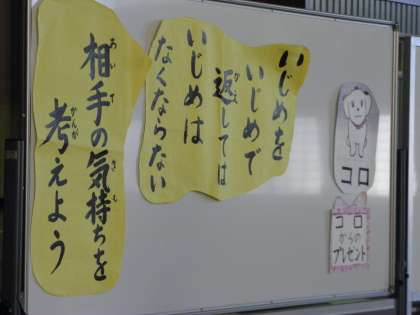 いじめを
いじめで
返しては
いじめは
なくならない
相手の気持ちを
考えよう
コロ
コロ
からの
プレゼント